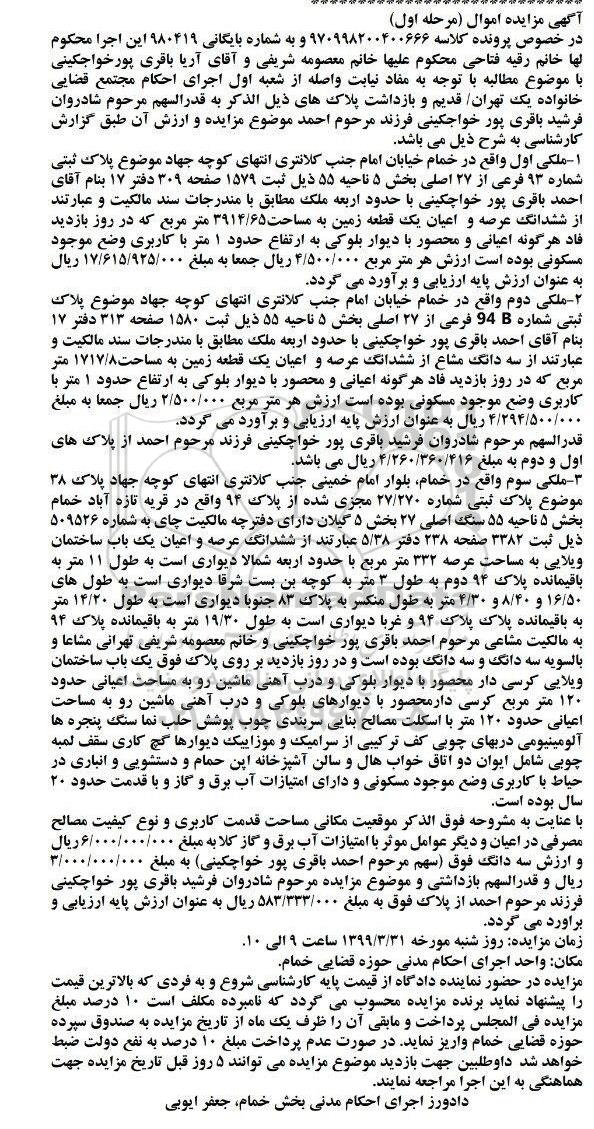 آگهی مزایده اموال (مرحله اول)
در خصوص پرونده کلاسه ۹۷۰۹۹۸۲۰۰۴۰۰۶۶۶ و به شماره بایگانی ۹۸۰۴۱۹ این اجرا محکوم
لها خانم رقیه فتاحی محکوم علیها خانم معصومه شریفی و آقای آریا باقری پورخواجکینی
با موضوع مطالبه با توجه به مفاد نیابت واصله از شعبه اول اجرای احکام مجتمع قضایی
خانواده یک تهران/ قدیم و بازداشت پلاک های ذیل الذکر به قدرالسهم مرحوم شادروان
فرشید باقری پور خواجکینی فرزند مرحوم احمد موضوع مزایده و ارزش آن طبق گزارش
کارشناسی به شرح ذیل می باشد.
۱-ملکی اول واقع در خمام خیابان امام جنب کلانتری انتهای کوچه جهاد موضوع پلاک ثبتی
شماره ۹۳ فرعی از ۲۷ اصلی بخش ۵ ناحیه ۵۵ ذیل ثبت ۱۵۷۹ صفحه ۳۰۹ دفتر ۱۷ بنام آقای
احمد باقری پور خواچکینی با حدود اربعه ملک مطابق با مندرجات سند مالکیت و عبارتند
از ششدانگ عرصه و اعیان یک قطعه زمین به مساحت۳۹۱۴/۶۵ متر مربع که در روز بازدید
فاد هرگونه اعیانی و محصور با دیوار بلوکی به ارتفاع حدود ۱ متر با کاربری وضع موجود
مسکونی بوده است ارزش هر متر مربع ۴/۵۰۰/۰۰۰ ریال جمعا به مبلغ ۱۷/۶۱۵/۹۲۵/۰۰۰ ریال
به عنوان ارزش پایه ارزیابی و برآورد می گردد.
۲-ملکی دوم واقع در خمام خیابان امام جنب کلانتری انتهای کوچه جهاد موضوع پلاک
ثبتی شماره 94 B فرعی از ۲۷ اصلی بخش ۵ ناحیه ۵۵ ذیل ثبت ۱۵۸۰ صفحه ۳۱۳ دفتر ۱۷
بنام آقای احمد باقری پور خواچکینی با حدود اربعه ملک مطابق با مندرجات سند مالکیت و
عبارتند از سه دانگ مشاع از ششدانگ عرصه و اعیان یک قطعه زمین به مساحت۱۷۱۷/۸ متر
مربع که در روز بازدید فاد هرگونه اعیانی و محصور با دیوار بلوکی به ارتفاع حدود ۱ متر با
کاربری وضع موجود مسکونی بوده است ارزش هر متر مربع ۲/۵۰۰/۰۰۰ ریال جمعا به مبلغ
۴/۲۹۴/۵۰۰/۰۰۰ ریال به عنوان ارزش پایه ارزیابی و برآورد می گردد.
قدرالسهم مرحوم شادروان فرشید باقری پور خواجکینی فرزند مرحوم احمد از پلاک های
اول و دوم به مبلغ ۴/۲۶۰/۳۶۰/۴۱۶ ریال می باشد.
۳-ملکی سوم واقع در خمام، بلوار امام خمینی جنب کلانتری انتهای کوچه جهاد پلاک ۳۸
موضوع پلاک ثبتی شماره ۲۷/۲۷۰ مجزی شده از پلاک ۹۴ واقع در قریه تازه آباد خمام
بخش ۵ ناحیه ۵۵ سنگ اصلی ۲۷ بخش ۵ گیلان دارای دفترچه مالکیت چای به شماره ۵۰۹۵۲۶
ذیل ثبت ۳۳۸۲ صفحه ۲۳۸ دفتر ۵/۳۸ عبارتند از ششدانگ عرصه و اعیان یک باب ساختمان
ویلایی به مساحت عرصه ۳۳۲ متر مربع با حدود اربعه شمالا دیواری است به طول ۱۱ متر به
باقیمانده پلاک ۹۴ دوم به طول ۳ متر به کوچه بن بست شرقا دیواری است به طول های
۱۶/۵۰ و ۸/۴۰ و ۴/۳۰ متر به طول منکسر به پلاک ۸۳ جنوبا دیواری است به طول ۱۴/۲۰ متر
به باقیمانده پلاک پلاک ۹۴ و غربا دیواری است به طول ۱۹/۳۰ متر به باقیمانده پلاک ۹۴
به مالکیت مشاعی مرحوم احمد باقری پور خواچکینی و خانم معصومه شریفی تهرانی مشاعا و
بالسویه سه دانگ و سه دانگ بوده است و در روز بازدید بر روی پلاک فوق یک باب ساختمان
ویلایی کرسی دار محصور با دیوار بلوکی و درب آهنی ماشین رو به مساحت اعیانی حدود
۱۲۰ متر مربع کرسی دارمحصور با دیوارهای بلوکی و درب آهنی ماشین رو به مساحت
اعیانی حدود ۱۲۰ متر با اسکلت مصالح بنایی سربندی چوب پوشش حلب نما سنگ پنجره ها
آلومینیومی دربهای چوبی کف ترکیبی از سرامیک و موزاییک دیوارها گچ کاری سقف لمبه
چوبی شامل ایوان دو اتاق خواب هال و سالن آشپزخانه اپن حمام و دستشویی و انباری در
حیاط با کاربری وضع موجود مسکونی و دارای امتیازات آب برق و گاز و با قدمت حدود ۲۰
سال بوده است.
با عنایت به مشروحه فوق الذکر موقعیت مکانی مساحت قدمت کاربری و نوع کیفیت مصالح
مصرفی در اعیان و دیگر عوامل موثر با امتیازات آب برق و گاز کلا به مبلغ ۶/۰۰۰/۰۰۰/۰۰۰ ریال
و ارزش سه دانگ فوق (سهم مرحوم احمد باقری پور خواچکینی) به مبلغ ۳/۰۰۰/۰۰۰/۰۰۰
ریال و قدرالسهم بازداشتی و موضوع مزایده مرحوم شادروان فرشید باقری پور خواچکینی
فرزند مرحوم احمد از پلاک فوق به مبلغ ۵۸۳/۳۳۳/۰۰۰ ریال به عنوان ارزش پایه ارزیابی و
براورد می گردد.
زمان مزایده: روز شنبه مورخه ۱۳۹۹/۳/۳۱ ساعت ۹ الی ۱۰.
مکان: واحد اجرای احکام مدنی حوزه قضایی خمام.
مزایده در حضور نماینده دادگاه از قیمت پایه کارشناسی شروع و به فردی که بالاترین قیمت
را پیشنهاد نماید برنده مزایده محسوب می گردد که نامبرده مکلف است ۱۰ درصد مبلغ
مزایده فی المجلس پرداخت و مابقی آن را ظرف یک ماه از تاریخ مزایده به صندوق سپرده
حوزه قضایی خمام واریز نماید. در صورت عدم پرداخت مبلغ ۱۰ درصد به نفع دولت ضبط
خواهد شد داوطلبین جهت بازدید موضوع مزایده می توانند ۵ روز قبل تاریخ مزایده جهت
هماهنگی به این اجرا مراجعه نمایند.
دادورز اجرای احکام مدنی بخش خمام، جعفر ایوبی